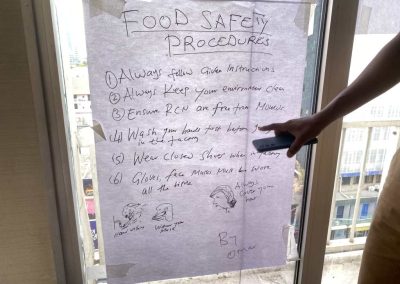 FOOD SAFETY
PROCEDURES
(1) Always follow Given Instructions
(2) Always Keep your environment clean
(3) Ensure RCN are free from
(4) Wash your hands first before
in the factory
(5) Wear Closed Shoes when in factory
(6) Gloves, face Masks Must be worn
all the time
Always
Cover your
hair
When you
By